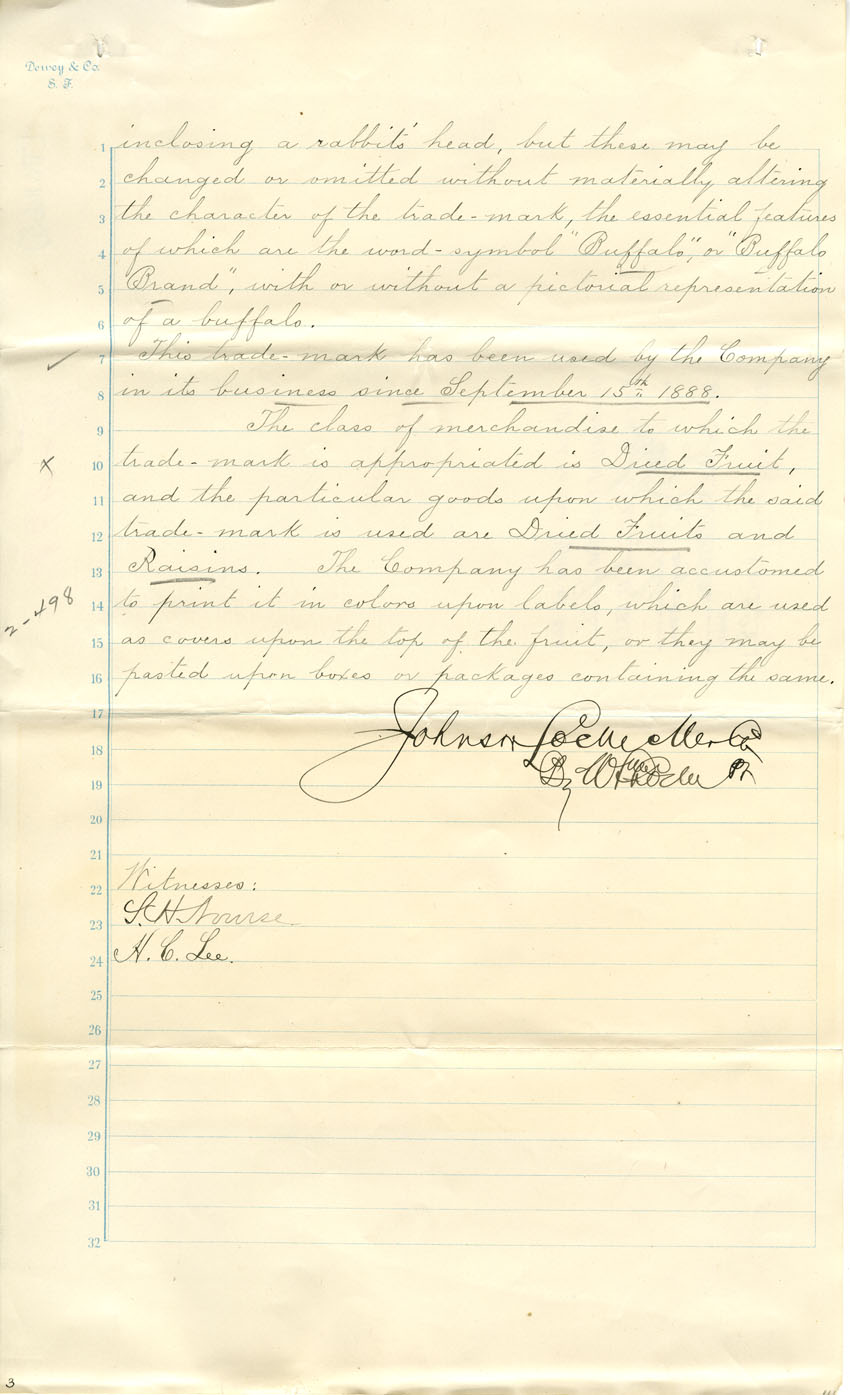 Dewey & Co.
S. F.
1 inclosing a rabbit's head, but these may be
2 changed or omitted without materially altering
3 the character of the trade-mark, the essential features
4 of which are the word-symbol "Buffalo", or "Buffalo
5 Brand", with or without a pictorial representation
6 of a buffalo.
7 This trade-mark has been used by the Company
8 in its business since September 15th 1888.
9 The class of merchandise to which the
x
10 trade-mark is appropriated is Dried Fruit,
11 and the particular goods upon which the said
12 trade-mark is used are Dried Fruits and
13 Raisins. The Company has been accustomed
2-498
14 to print it in colors upon labels, which are used
15 as covers upon the top of the fruit, or they may be
16 pasted upon boxes or packages containing the same.
17
18 Johnson Locke Mer Co
19 By Wm
20
21
22 Witnesses:
23 S. H. Nourse
24 H. C. Lee.
25
26
27
28
29
30
31
32
3